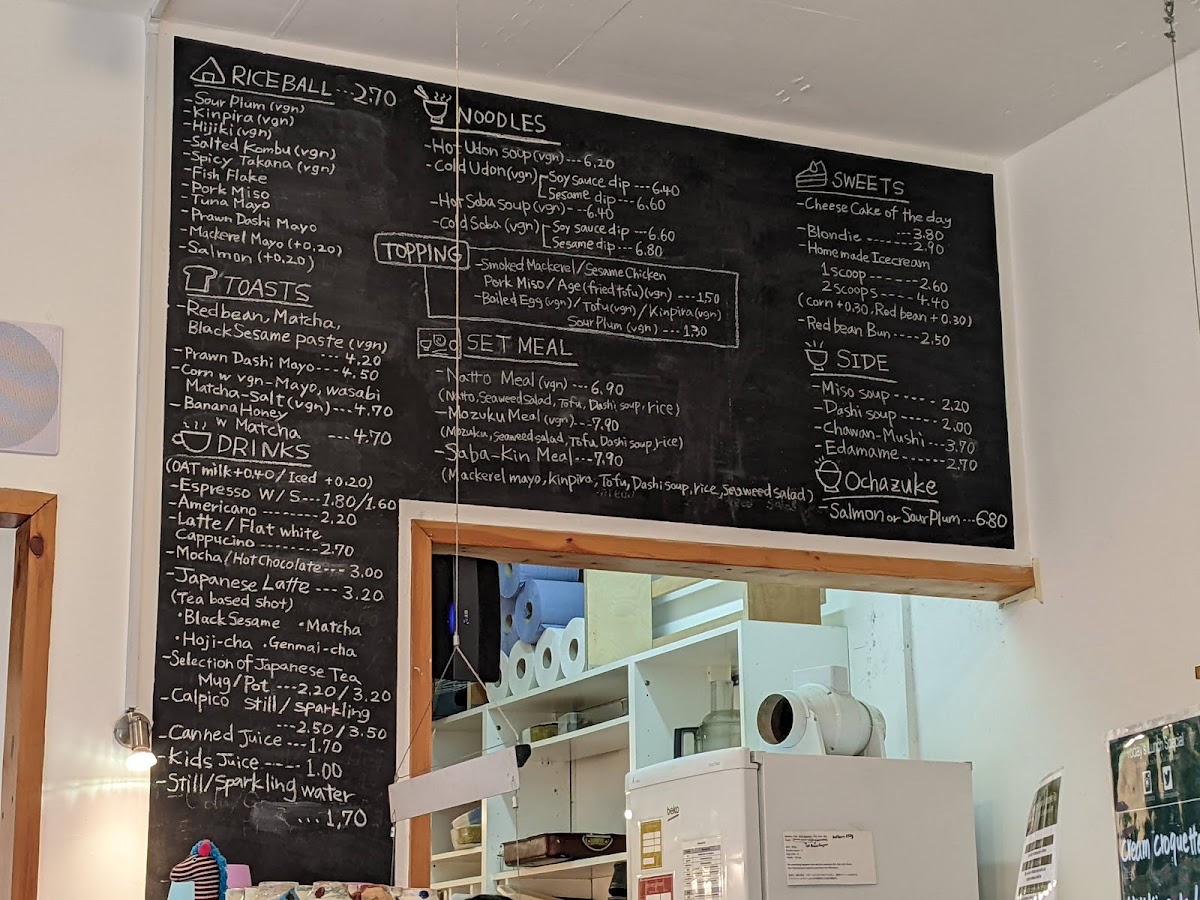 RICEBALL ---2.70
-Sour Plum (vgn)
-Kinpira (vgn)
-Hijiki (vgn)
-Salted Kombu (vgn)
-Spicy Takana (vgn)
-Fish Flake
-Pork Miso
-Tuna Mayo
-Prawn Dashi Mayo
-Mackerel Mayo (+0.20)
-Salmon (+0.20)
TOASTS
-Redbean, Matcha,
Black Sesame paste (vgn)
--- 4.20
-Prawn Dashi Mayo --- 4.50
-Corn w vgn-Mayo, wasabi
Matcha-salt (vgn)--- 4.70
-Banana Honey
w Matcha --- 4.70
DRINKS
(OAT milk +0.40 / Iced +0.20)
-Espresso W/S---1.80/1.60
-Americano -------- 2.20
-Latte / Flat white
Cappucino --------- 2.70
-Mocha/Hot Chocolate--- 3.00
-Japanese Latte --- 3.20
(Tea based shot)
•Black Sesame •Matcha
•Hoji-cha •Genmai-cha
-Selection of Japanese Tea
Mug/Pot ---2.20/3.20
-Calpico still/sparkling
---2.50/3.50
-Canned Juice---1.70
-Kids Juice-----1.00
-Still/Sparkling water
---1.70
NOODLES
-Hot Udon soup (vgn)---6.20
-Cold Udon (vgn) Soy sauce dip ---6.40
Sesame dip ---6.60
-Hot Soba soup (vgn)---6.40
-Cold Soba (vgn) Soy sauce dip ---6.60
Sesame dip --- 6.80
TOPPING
-Smoked Mackerel / Sesame Chicken
Pork Miso / Age (fried tofu) (vgn) --- 1.50
-Boiled Egg (vgn) / Tofu (vgn) / Kinpira (vgn)
Sour Plum (vgn) --- 1.30
SET MEAL
-Natto Meal (vgn) --- 6.90
(Natto, Seaweed salad, Tofu, Dashi soup, rice)
-Mozuku Meal (vgn)---7.90
(Mozuku, Seaweed salad, Tofu, Dashi soup, rice)
-Saba-Kin Meal---7.90
(Mackerel mayo, Kinpira, Tofu, Dashi soup, rice, Seaweed salad)
SWEETS
-Cheese Cake of the day
---3.80
-Blondie -------2.90
-Homemade Icecream
1 scoop -------2.60
2 scoops ----- 4.40
(corn +0.30, Red bean +0.30)
-Red bean Bun---2.50
SIDE
-Miso soup ----- 2.20
-Dashi soup ---- 2.00
-Chawan-Mushi ---3.70
-Edamame ------2.70
Ochazuke
-Salmon or Sour Plum ---6.80
beko
Today's Lunch Special
Cream croquette